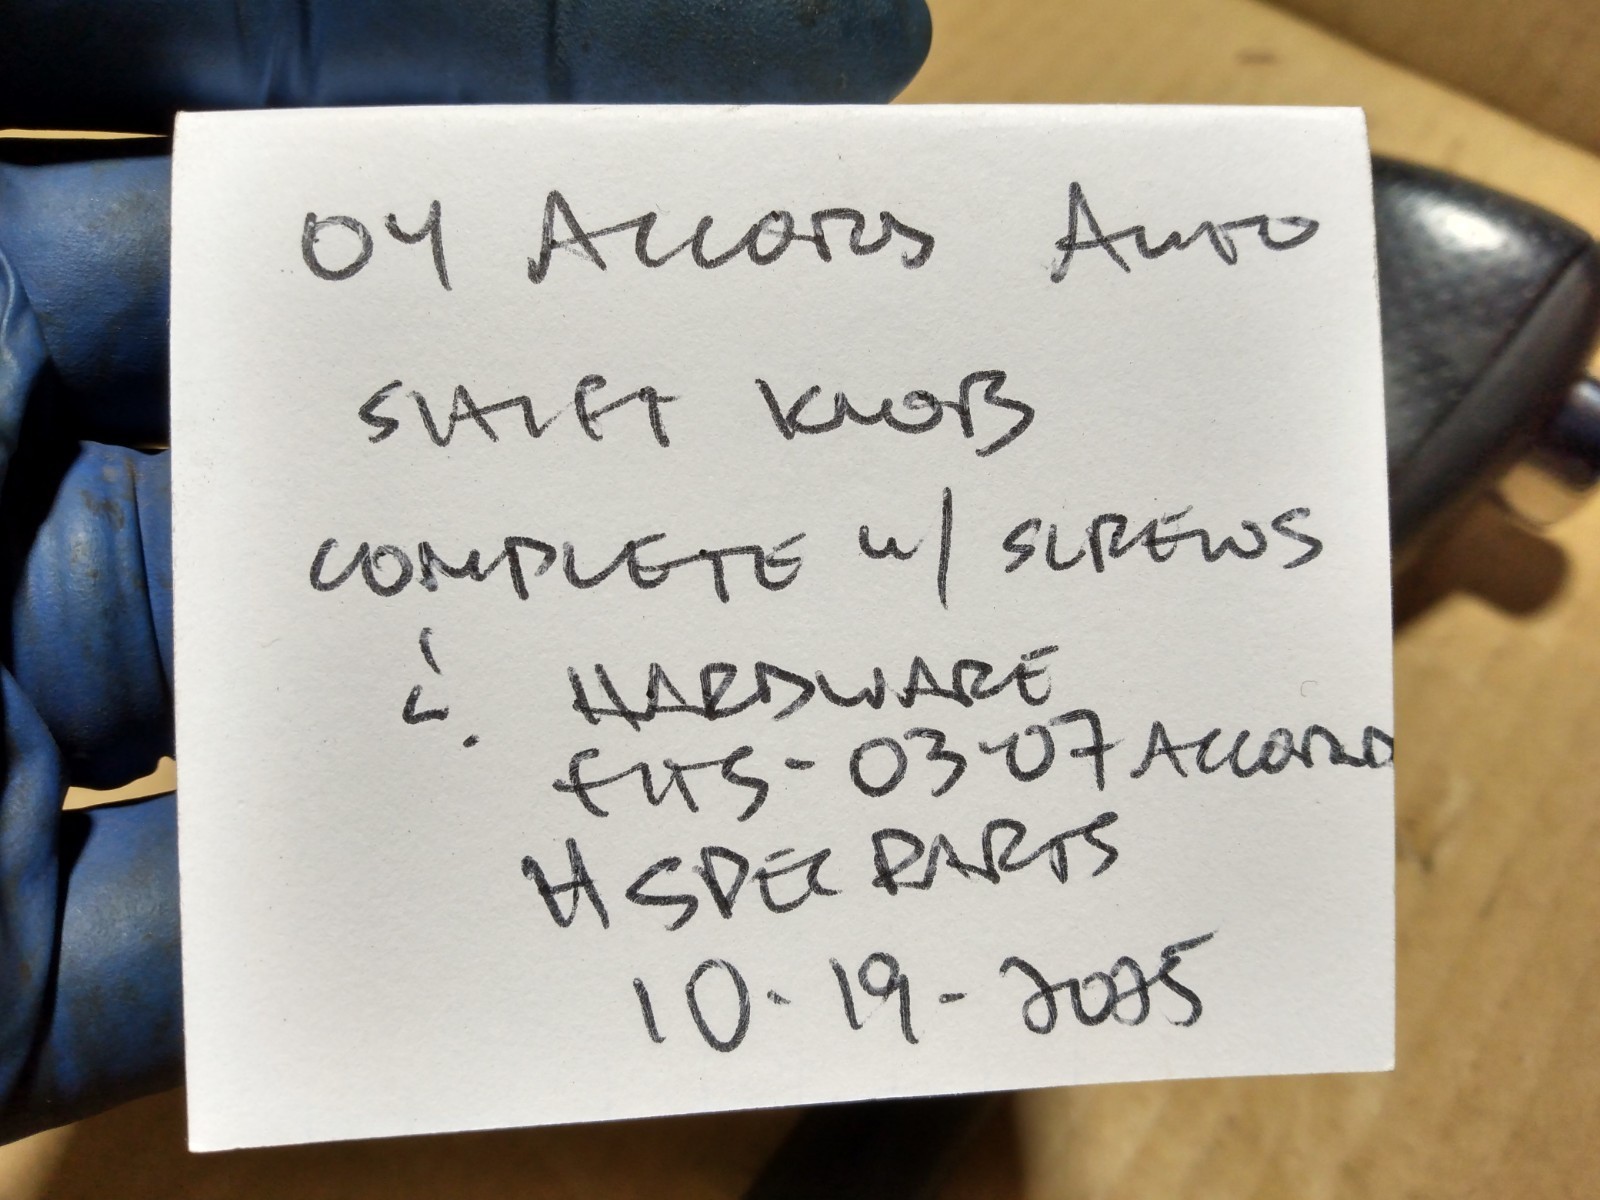 04 ACCORD AUTO
SHIFT KNOB
COMPLETE w/ SCREWS
& HARDWARE
FITS-03-07 ACCORD
H SPEC PARTS
10-19-2025